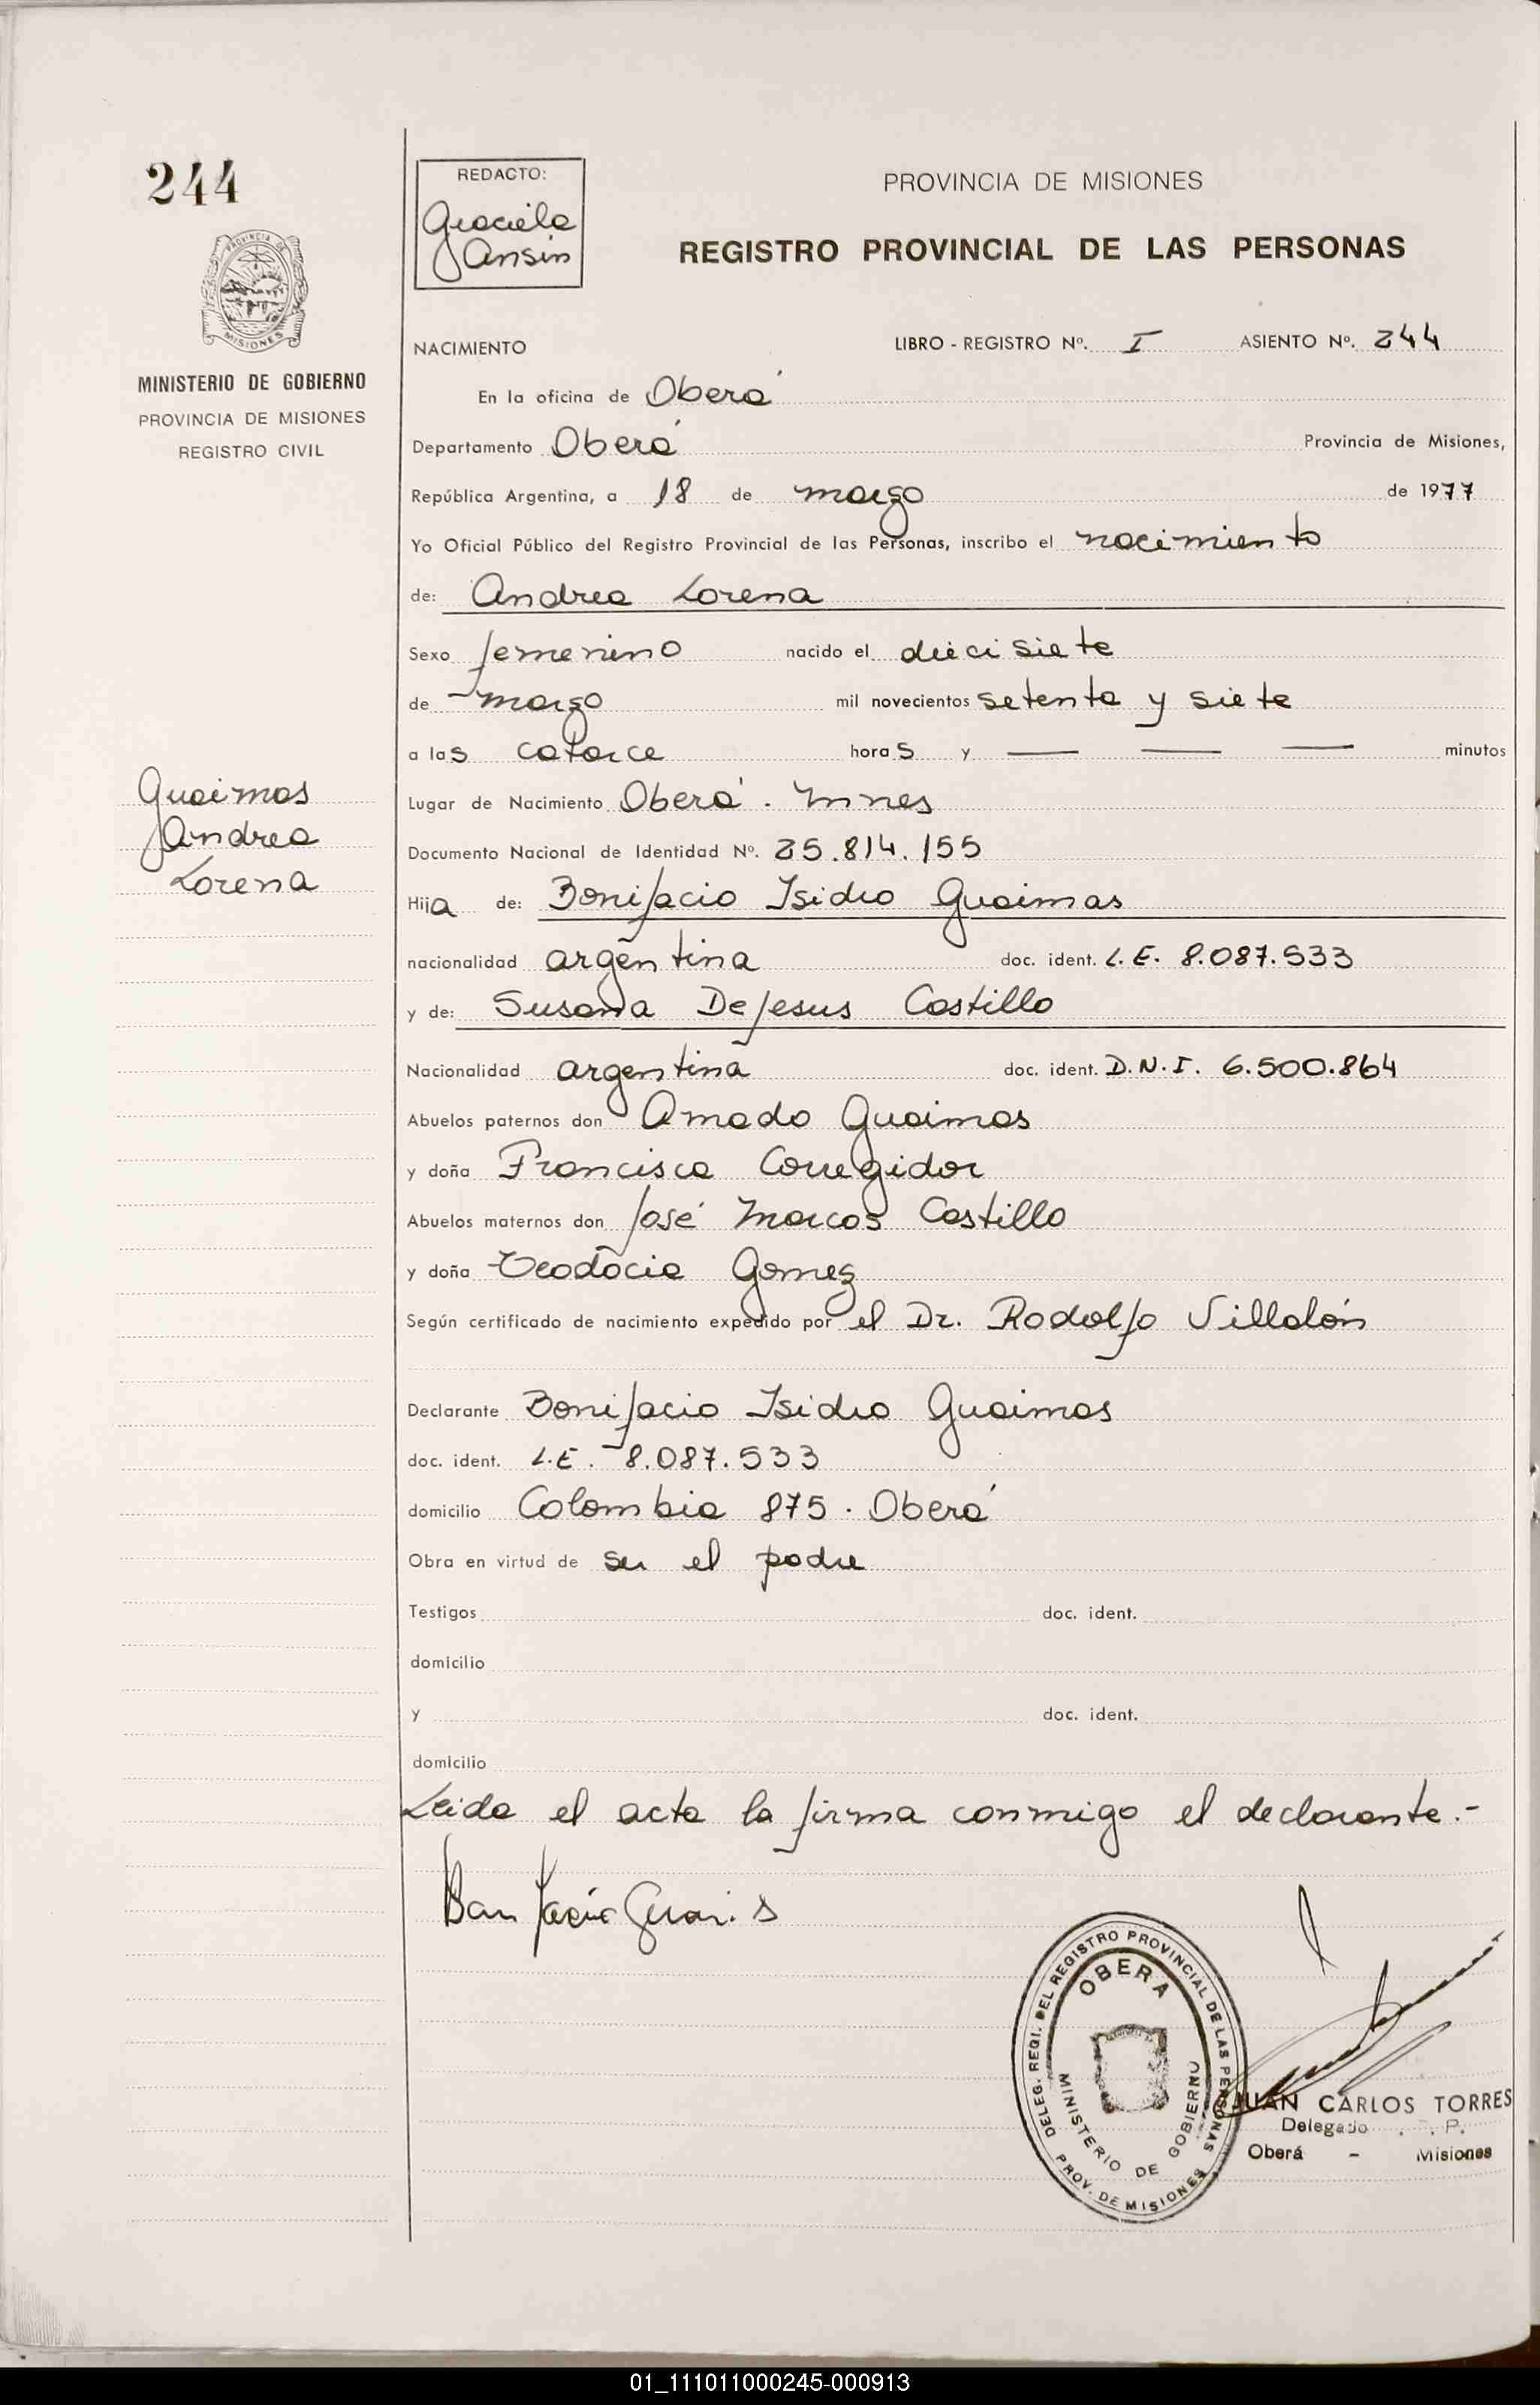 244
PROVINCIA DE
MISIONES
MINISTERIO DE GOBIERNO
PROVINCIA DE MISIONES
REGISTRO CIVIL
Guaimas
Andrea
Lorena
REDACTO:
Graciela
Ansin
PROVINCIA DE MISIONES
REGISTRO PROVINCIAL DE LAS PERSONAS
NACIMIENTO LIBRO - REGISTRO Nº. I ASIENTO Nº. 244
En la oficina de Oberá
Departamento Oberá Provincia de Misiones,
República Argentina, a 18 de marzo de 1977
Yo Oficial Público del Registro Provincial de las Personas, inscribo el nacimiento
de: Andrea Lorena
Sexo femenino nacido el diecisiete
de marzo mil novecientos setenta y siete
a las catorce horas y — — — minutos
Lugar de Nacimiento Oberá. Mnes
Documento Nacional de Identidad Nº. 25.814.155
Hija de: Bonifacio Isidro Guaimas
nacionalidad argentina doc. ident. L.E. 8.087.533
y de: Susana De Jesus Castillo
Nacionalidad argentina doc. ident. D.N.I. 6.500.864
Abuelos paternos don Amado Guaimas
y doña Francisca Corregidor
Abuelos maternos don José Marcos Castillo
y doña Teodocia Gomez
Según certificado de nacimiento expedido por el Dr. Rodolfo Villalón
Declarante Bonifacio Isidro Guaimas
doc. ident. L.E. 8.087.533
domicilio Colombia 875. Oberá
Obra en virtud de ser el padre
Testigos doc. ident.
domicilio
y doc. ident.
domicilio
Leida el acta la firma conmigo el declarante.-
DELEG. REGI. DEL REGISTRO PROVINCIAL DE LAS PERSONAS
OBERA
MINISTERIO DE GOBIERNO
PROV. DE MISIONES
JUAN CARLOS TORRES
Delegado P.
Oberá - Misiones
01_111011000245-000913